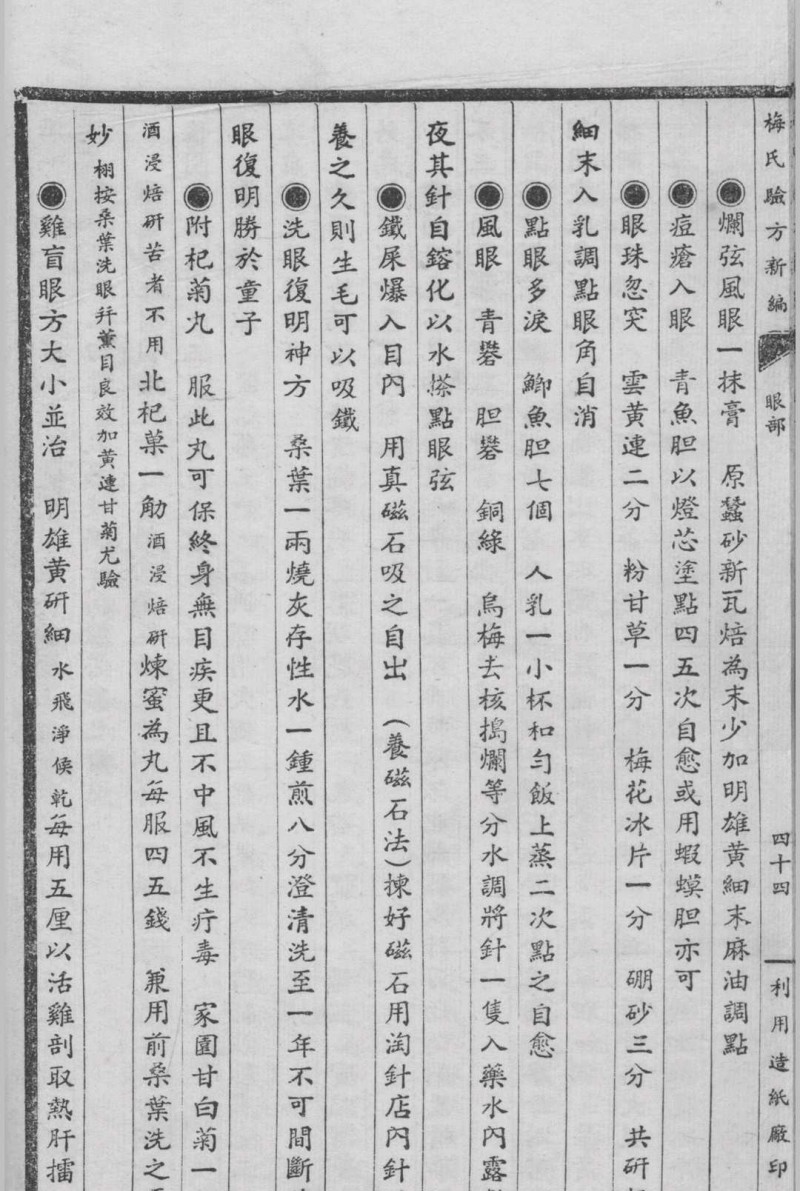 梅氏驗方新編 眼部 四十四 利用造紙廠印
爛弦風眼一抹膏 原蠶砂新瓦焙為末少加明雄黃細末麻油調點
痘瘡入眼 青魚胆以燈芯塗點四五次自愈或用蝦蟆胆亦可
眼珠忽突 雲黃連二分 粉甘草一分 梅花冰片一分 硼砂三分 共研
細末入乳調點眼角自消
點眼多淚 鯽魚胆七個 人乳一小杯和勻飯上蒸二次點之自愈
風眼 青礬 胆礬 銅綠 烏梅去核搗爛等分水調將針一隻入藥水內露
夜其針自鎔化以水搽點眼弦
鐵屎爆入目內 用真磁石吸之自出 (養磁石法)揀好磁石用淘針店內針
養之久則生毛可以吸鐵
洗眼復明神方 桑葉一兩燒灰存性水一鍾煎八分澄清洗至一年不可間斷
眼復明勝於童子
附杞菊丸 服此丸可保終身無目疾更且不中風不生疔毒 家園甘白菊一
酒浸焙研苦者不用北杞菓一觔酒浸焙研煉蜜為丸每服四五錢 兼用前桑葉洗之
妙 栩按桑葉洗眼幷薰目良效加黃連甘菊尤驗
雞盲眼方大小並治 明雄黃研細水飛淨候乾每用五厘以活雞剖取熱肝擂